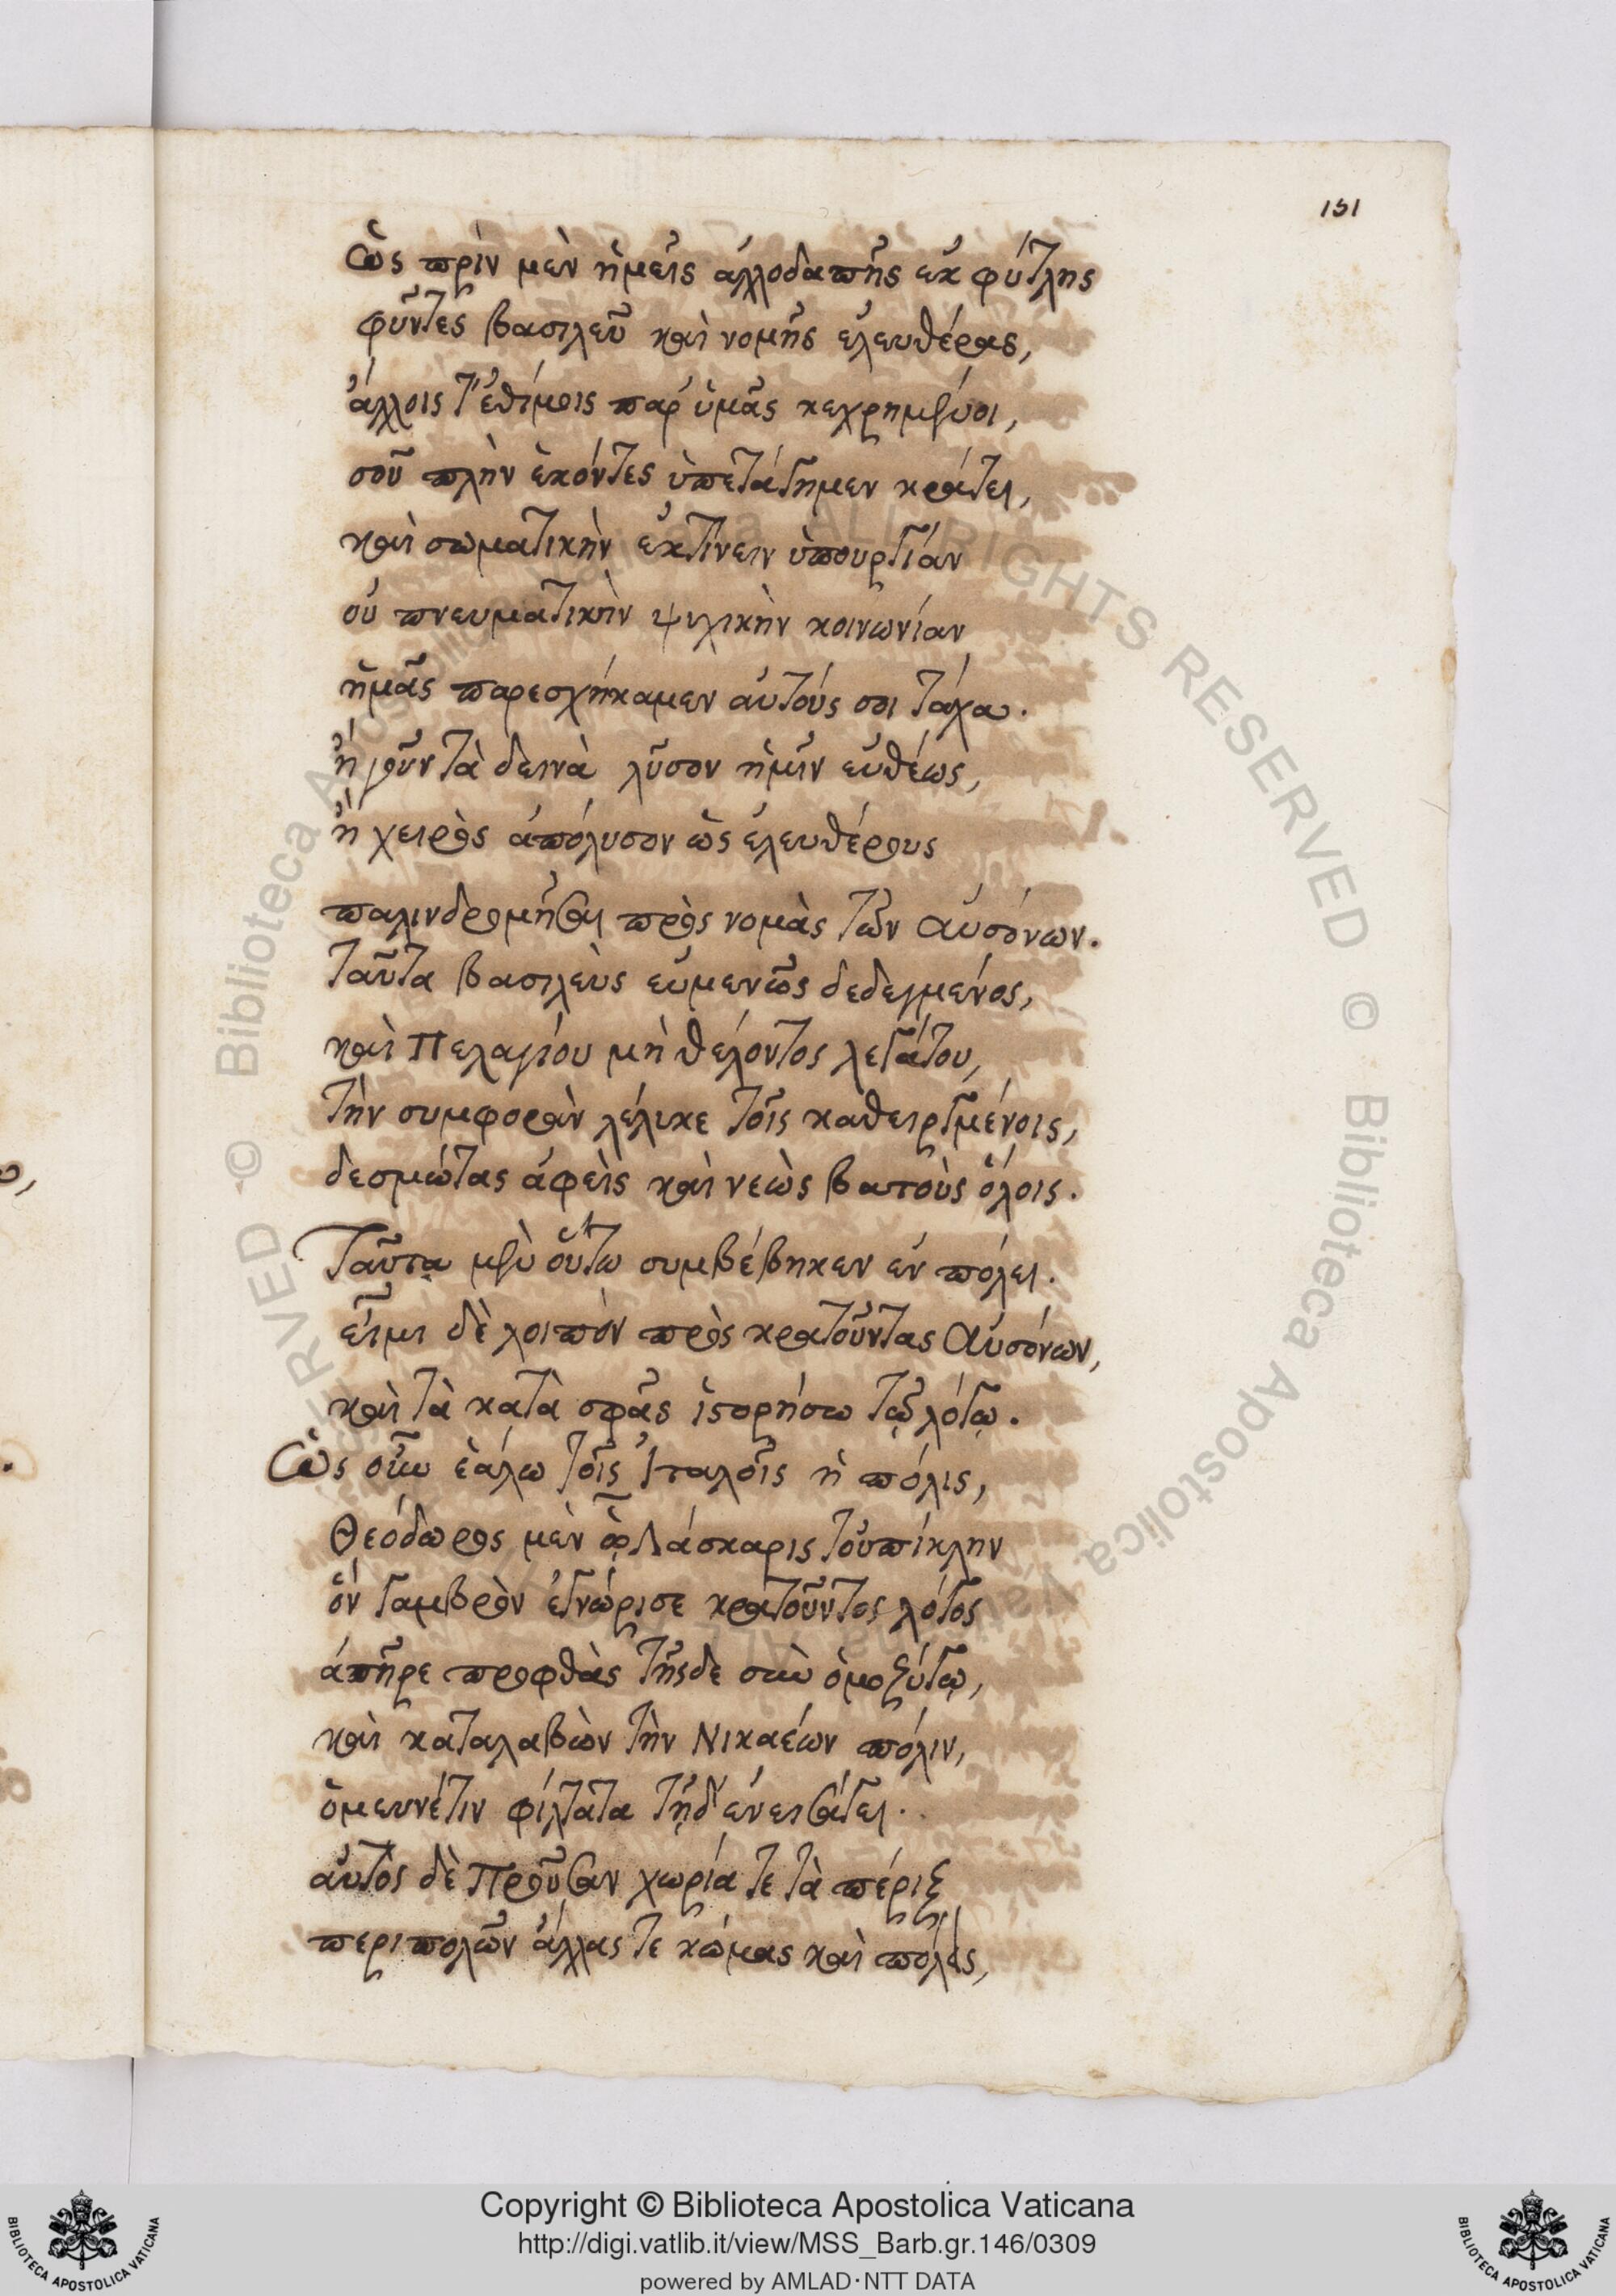 151
ὡς πρὶν μὲν ἡμεῖς ἀλλοδαπῆς ἐκ φύτλης
φῦντες βασιλεῦ καὶ νομῆς ἐλευθέρας,
ἄλλοις τ' ἐθίμοις παρ' ὑμᾶς κεχρημένοι,
σοῦ πλὴν ἑκόντες ὑπετάγημεν κράτει,
καὶ σωματικὴν ἐκτίνειν ὑπουργίαν
οὐ πνευματικὴν ψυχικὴν κοινωνίαν
ἡμᾶς παρεσχήκαμεν αὐτούς σοι τάχα.
ἢ γοῦν τὰ δεινὰ λῦσον ἡμῖν εὐθέως,
ἢ χειρὸς ἀπόλυσον ὡς ἐλευθέρους
παλινδρομῆσαι πρὸς νομὰς τῶν αὐσόνων.
ταῦτα βασιλεὺς εὐμενῶς δεδεγμένος,
καὶ Πελαγίου μὴ θέλοντος λεγάτου,
τὴν συμφορὰν λέλυκε τοῖς καθειργμένοις,
δεσμώτας ἀφεὶς καὶ νεὼς βατοὺς ὅλοις.
Ταῦτα μὲν οὕτω συμβέβηκεν ἐν πόλει.
εἶμι δὲ λοιπὸν πρὸς κρατοῦντας Αὐσόνων,
καὶ τὰ κατὰ σφᾶς ἱστορήσω τῷ λόγῳ.
Ὡς οὖν ἑάλω τοῖς Ἰταλοῖς ἡ πόλις,
Θεόδωρος μὲν ᾧ Λάσκαρις τοὐπίκλην
ὃν γαμβρὸν ἐγνώρισε κρατοῦντος λόγος
ἀπῆρε προφθὰς τῆσδε σὺν ὁμοζύγῳ,
καὶ καταλαβὼν τὴν Νικαέων πόλιν,
ὁμευνέτιν φίλτατα τῇδ' ἐνεισάγει.
αὐτὸς δὲ Προῦσαν χωρία τε τὰ πέριξ
περιπολῶν ἄλλας τε κώμας καὶ πόλεις,
Copyright © Biblioteca Apostolica Vaticana
http://digi.vatlib.it/view/MSS_Barb.gr.146/0309
powered by AMLAD·NTT DATA